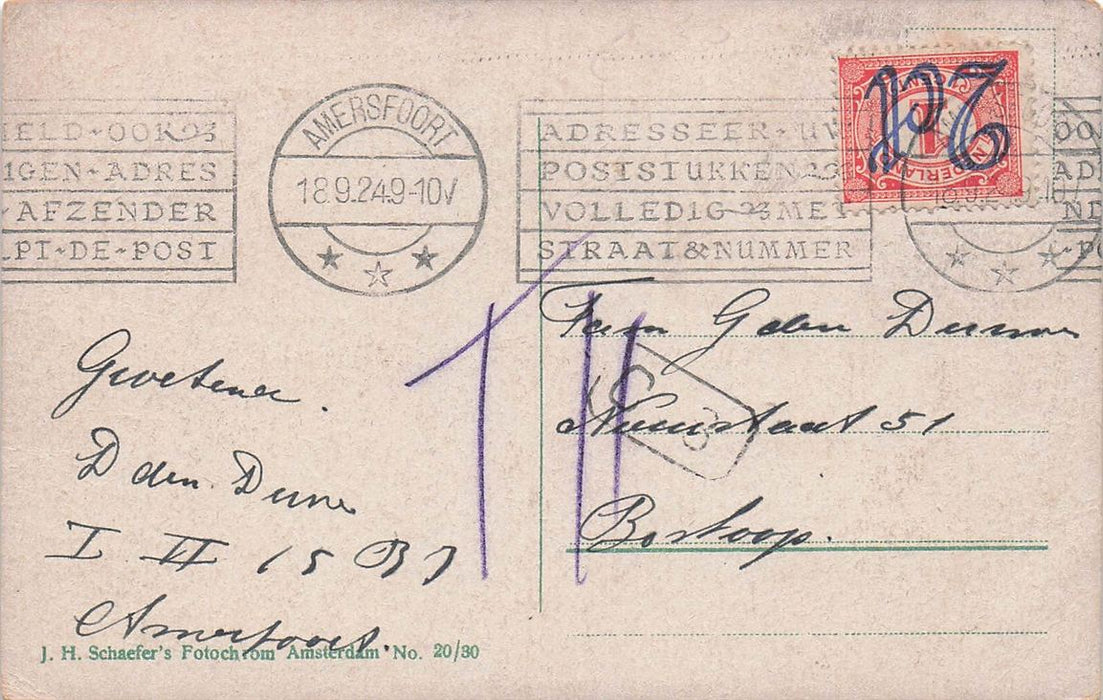 MELD OOK
EIGEN ADRES
AFZENDER
DE POST
AMERSFOORT
18.9.24 9-10V
ADRESSEER UW
POSTSTUKKEN
VOLLEDIG MET
STRAAT & NUMMER
NEDERLAND
CENT
Fam G den Dunnen
Nieuwstraat 51
Boskoop.
Groetend.
D den Dunne
I II 15 R I
Amersfoort.
J. H. Schaefer's Fotochrom Amsterdam No. 20/30